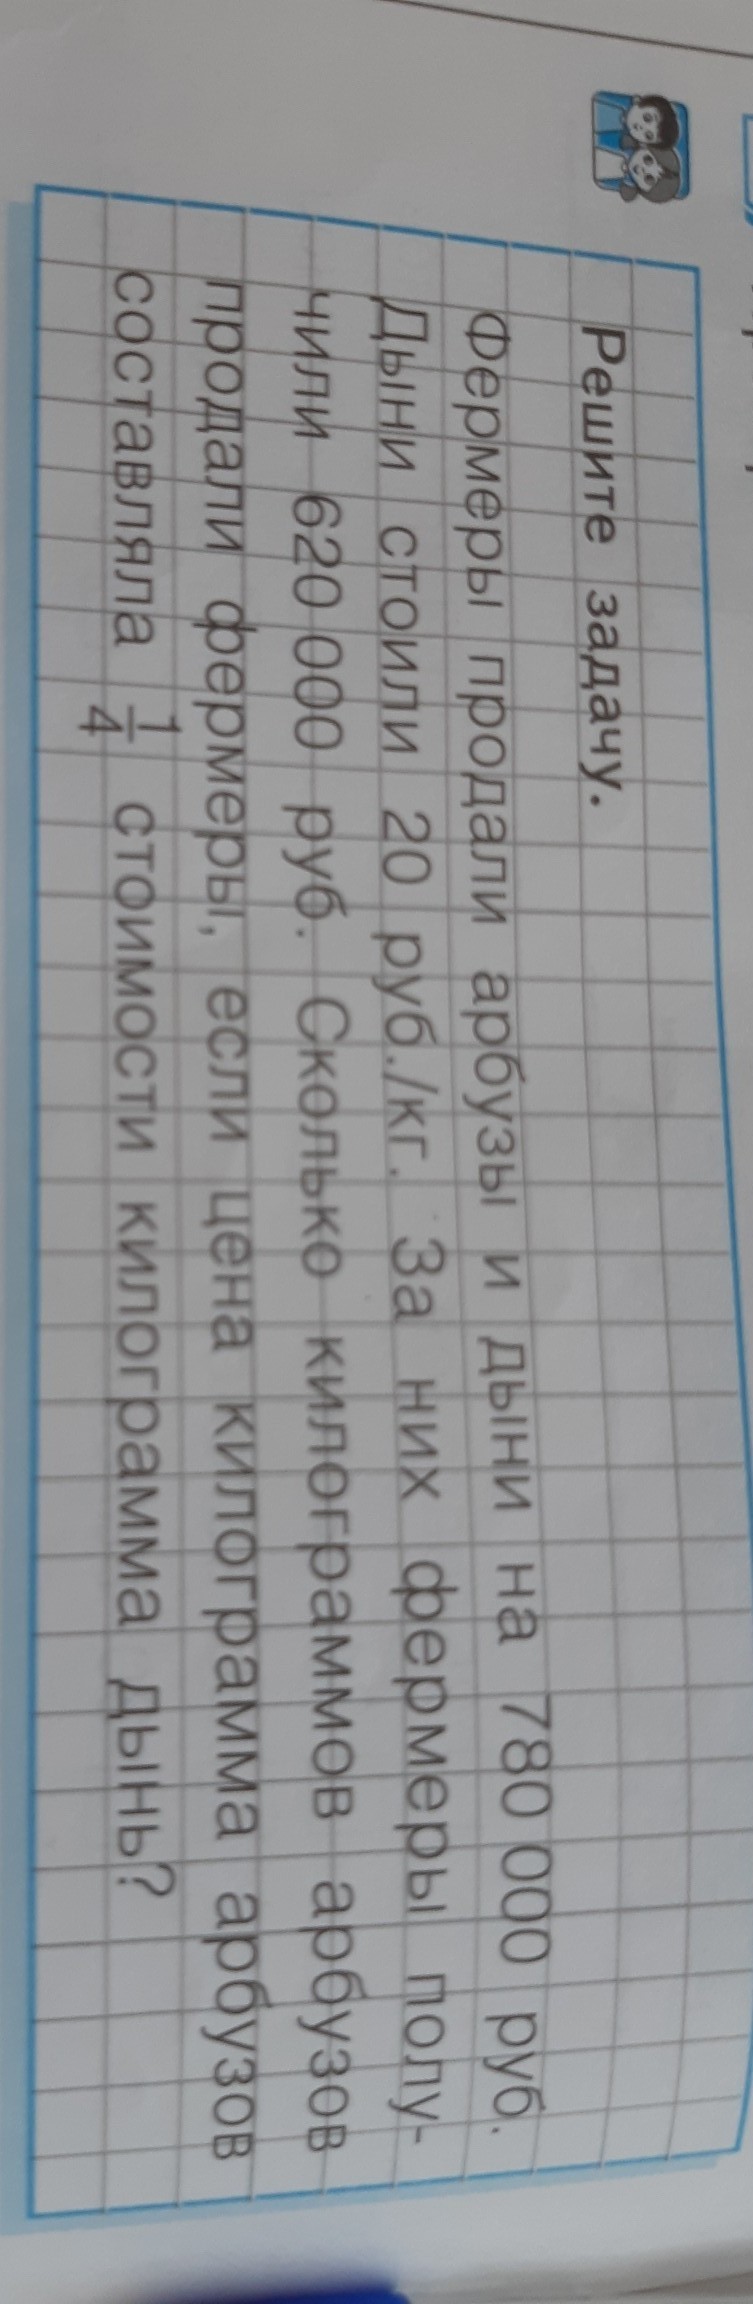 Решите задачу.
Фермеры продали арбузы и дыни на 780 000 руб.
Дыни стоили 20 руб./кг. За них фермеры полу-
чили 620 000 руб. Сколько килограммов арбузов
продали фермеры, если цена килограмма арбузов
составляла 1/4 стоимости килограмма дынь?